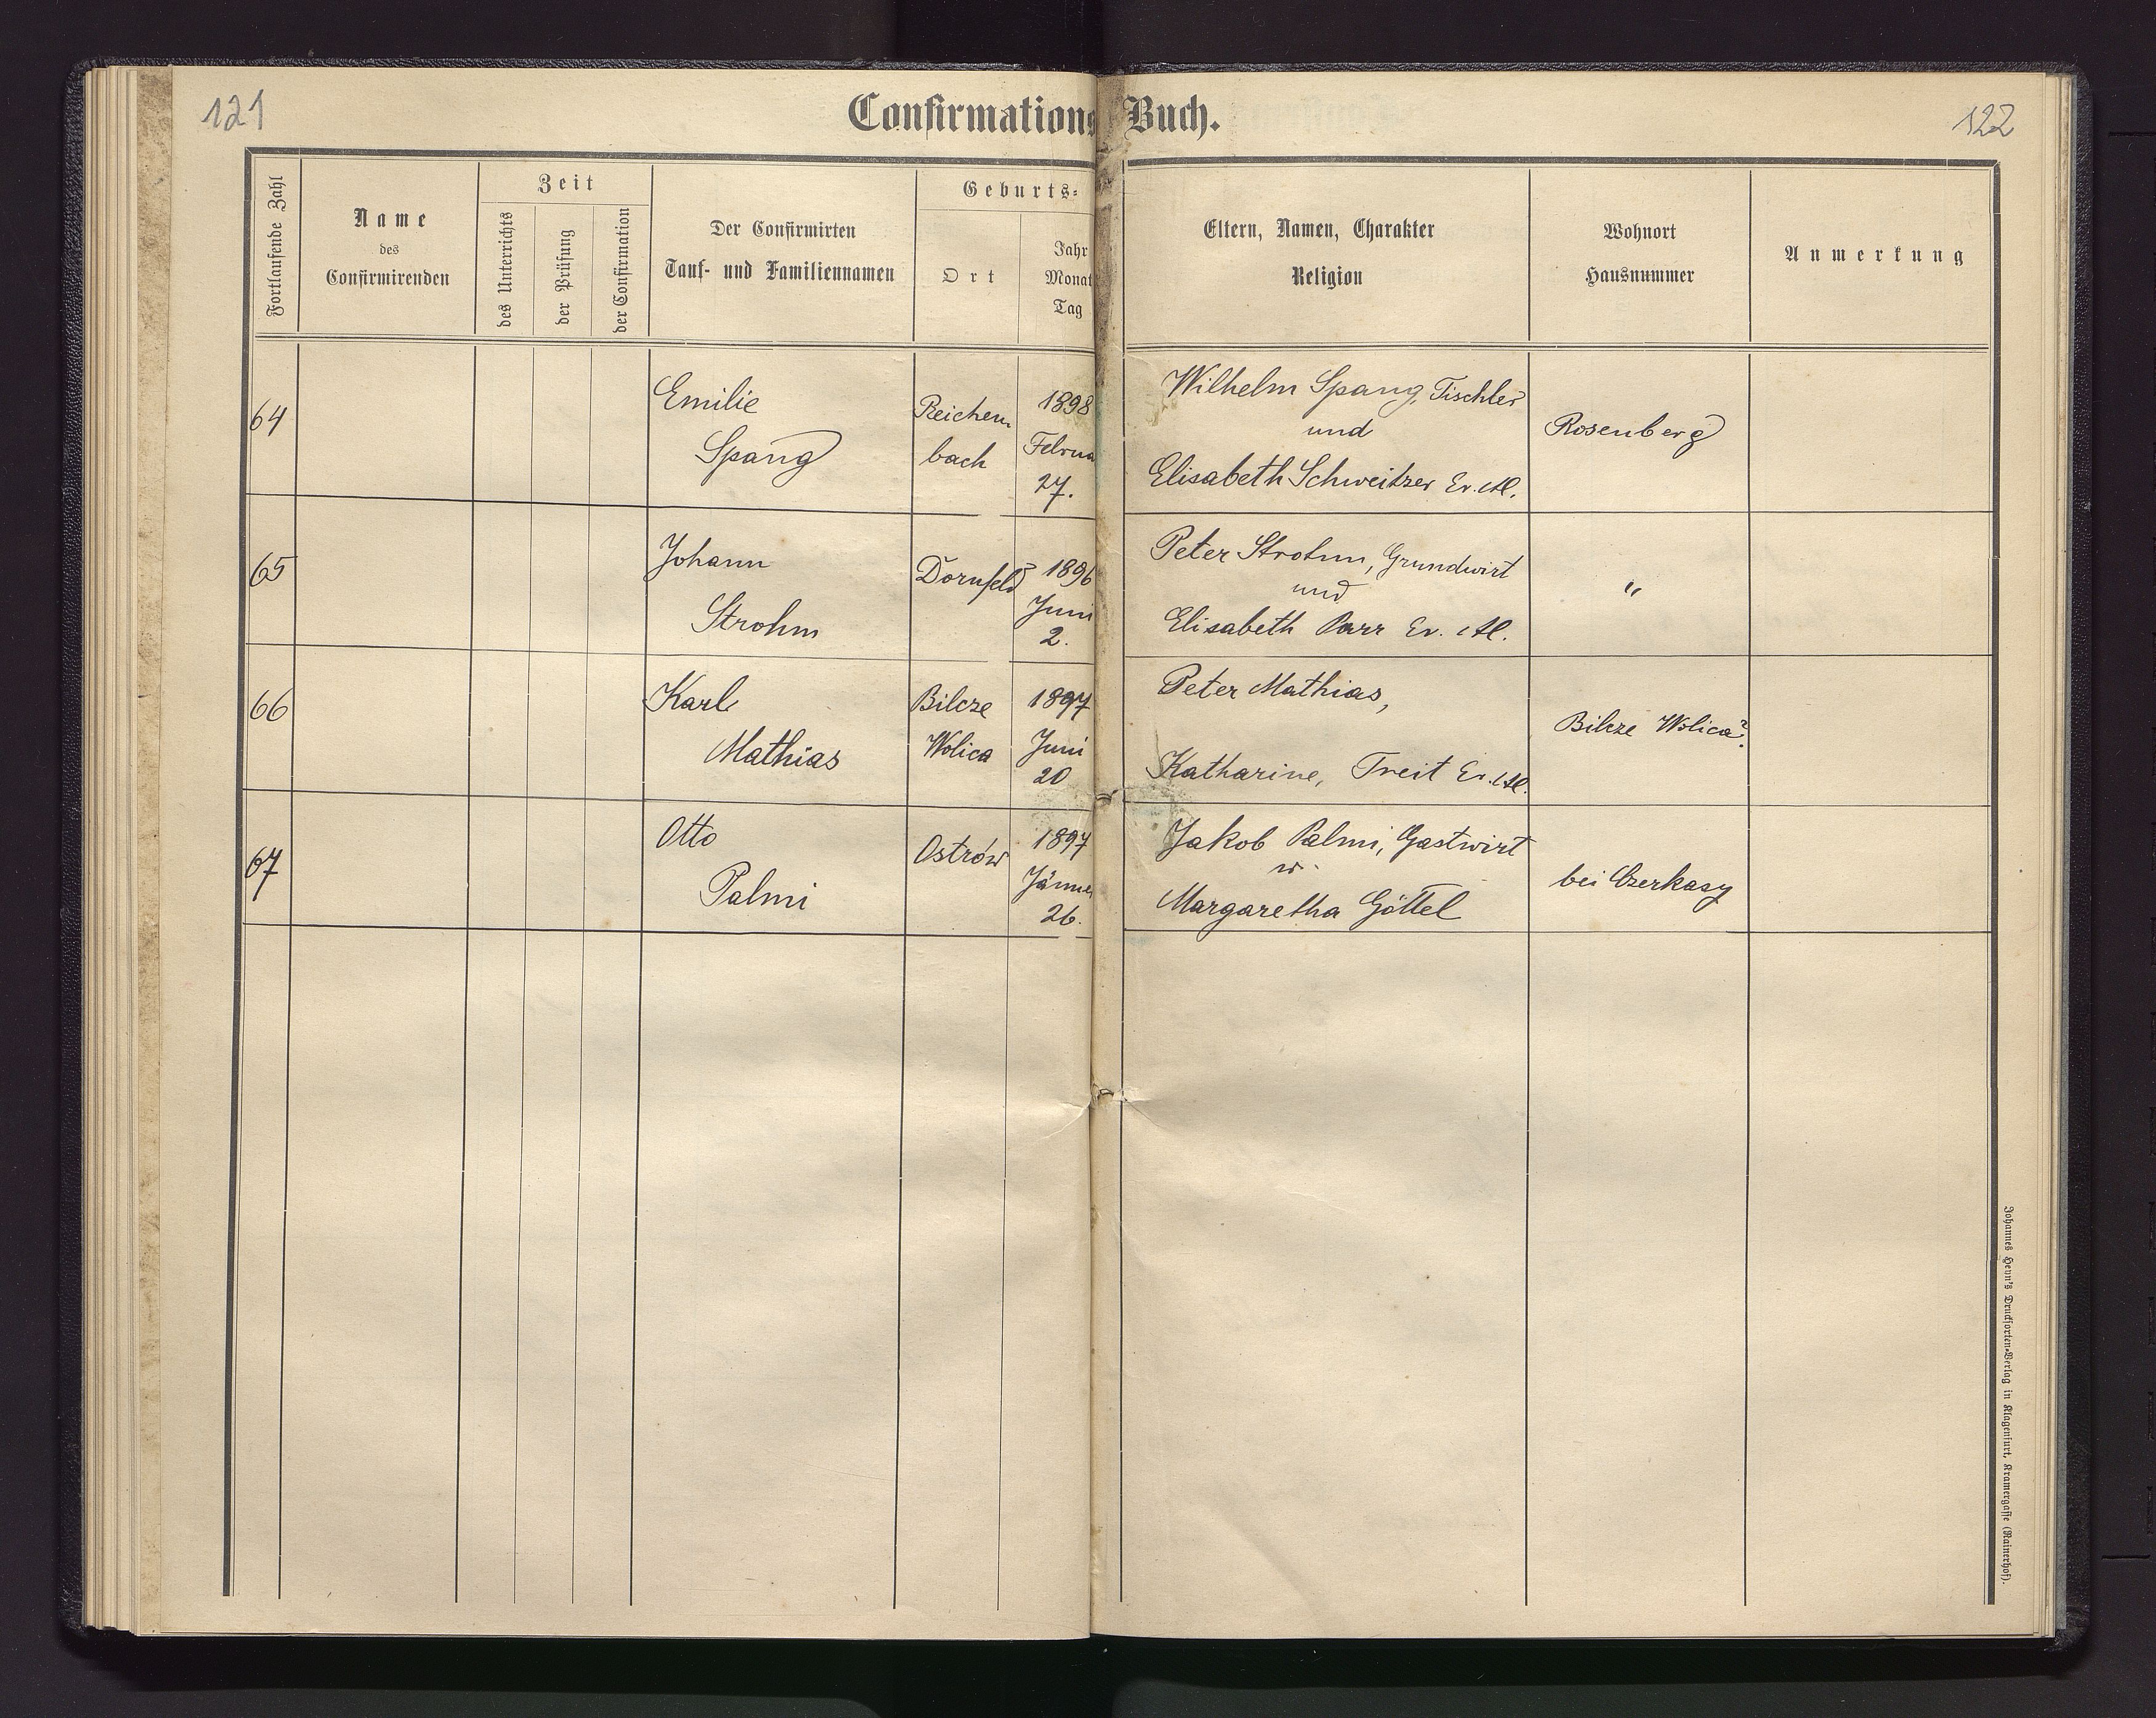 121
Confirmations Buch.
122
Fortlaufende Zahl
Name
des
Confirmirenden
Zeit
des Unterrichts
der Prüfung
der Confirmation
Der Confirmirten
Tauf- und Familiennamen
Geburts-
Ort
Jahr
Monat
Tag
Eltern, Namen, Charakter
Religion
Wohnort
Hausnummer
Anmerkung
64
Emilie
Spang
Reichen
bach
1898
Februa
27.
Wilhelm Spang, Tischler
und
Elisabeth Schweitzer Ev. Al.
Rosenberg
65
Johann
Strohm
Dornfeld
1896
Juni
2.
Peter Strohm, Grundwirt
und
Elisabeth Parr Ev. Al.
"
66
Karl
Mathias
Bilcze
Wolica
1897
Juni
20
Peter Mathias,
Katharine, Treit Ev. Al.
Bilcze Wolica?
67
Otto
Palmi
Ostrów
1897
Jänner
26.
Jakob Palmi, Gastwirt
Margaretha Göttel
bei Czerkasy
Johannes Heyn's Drucksorten-Verlag in Klagenfurt, Kramergasse (Rainerhof).